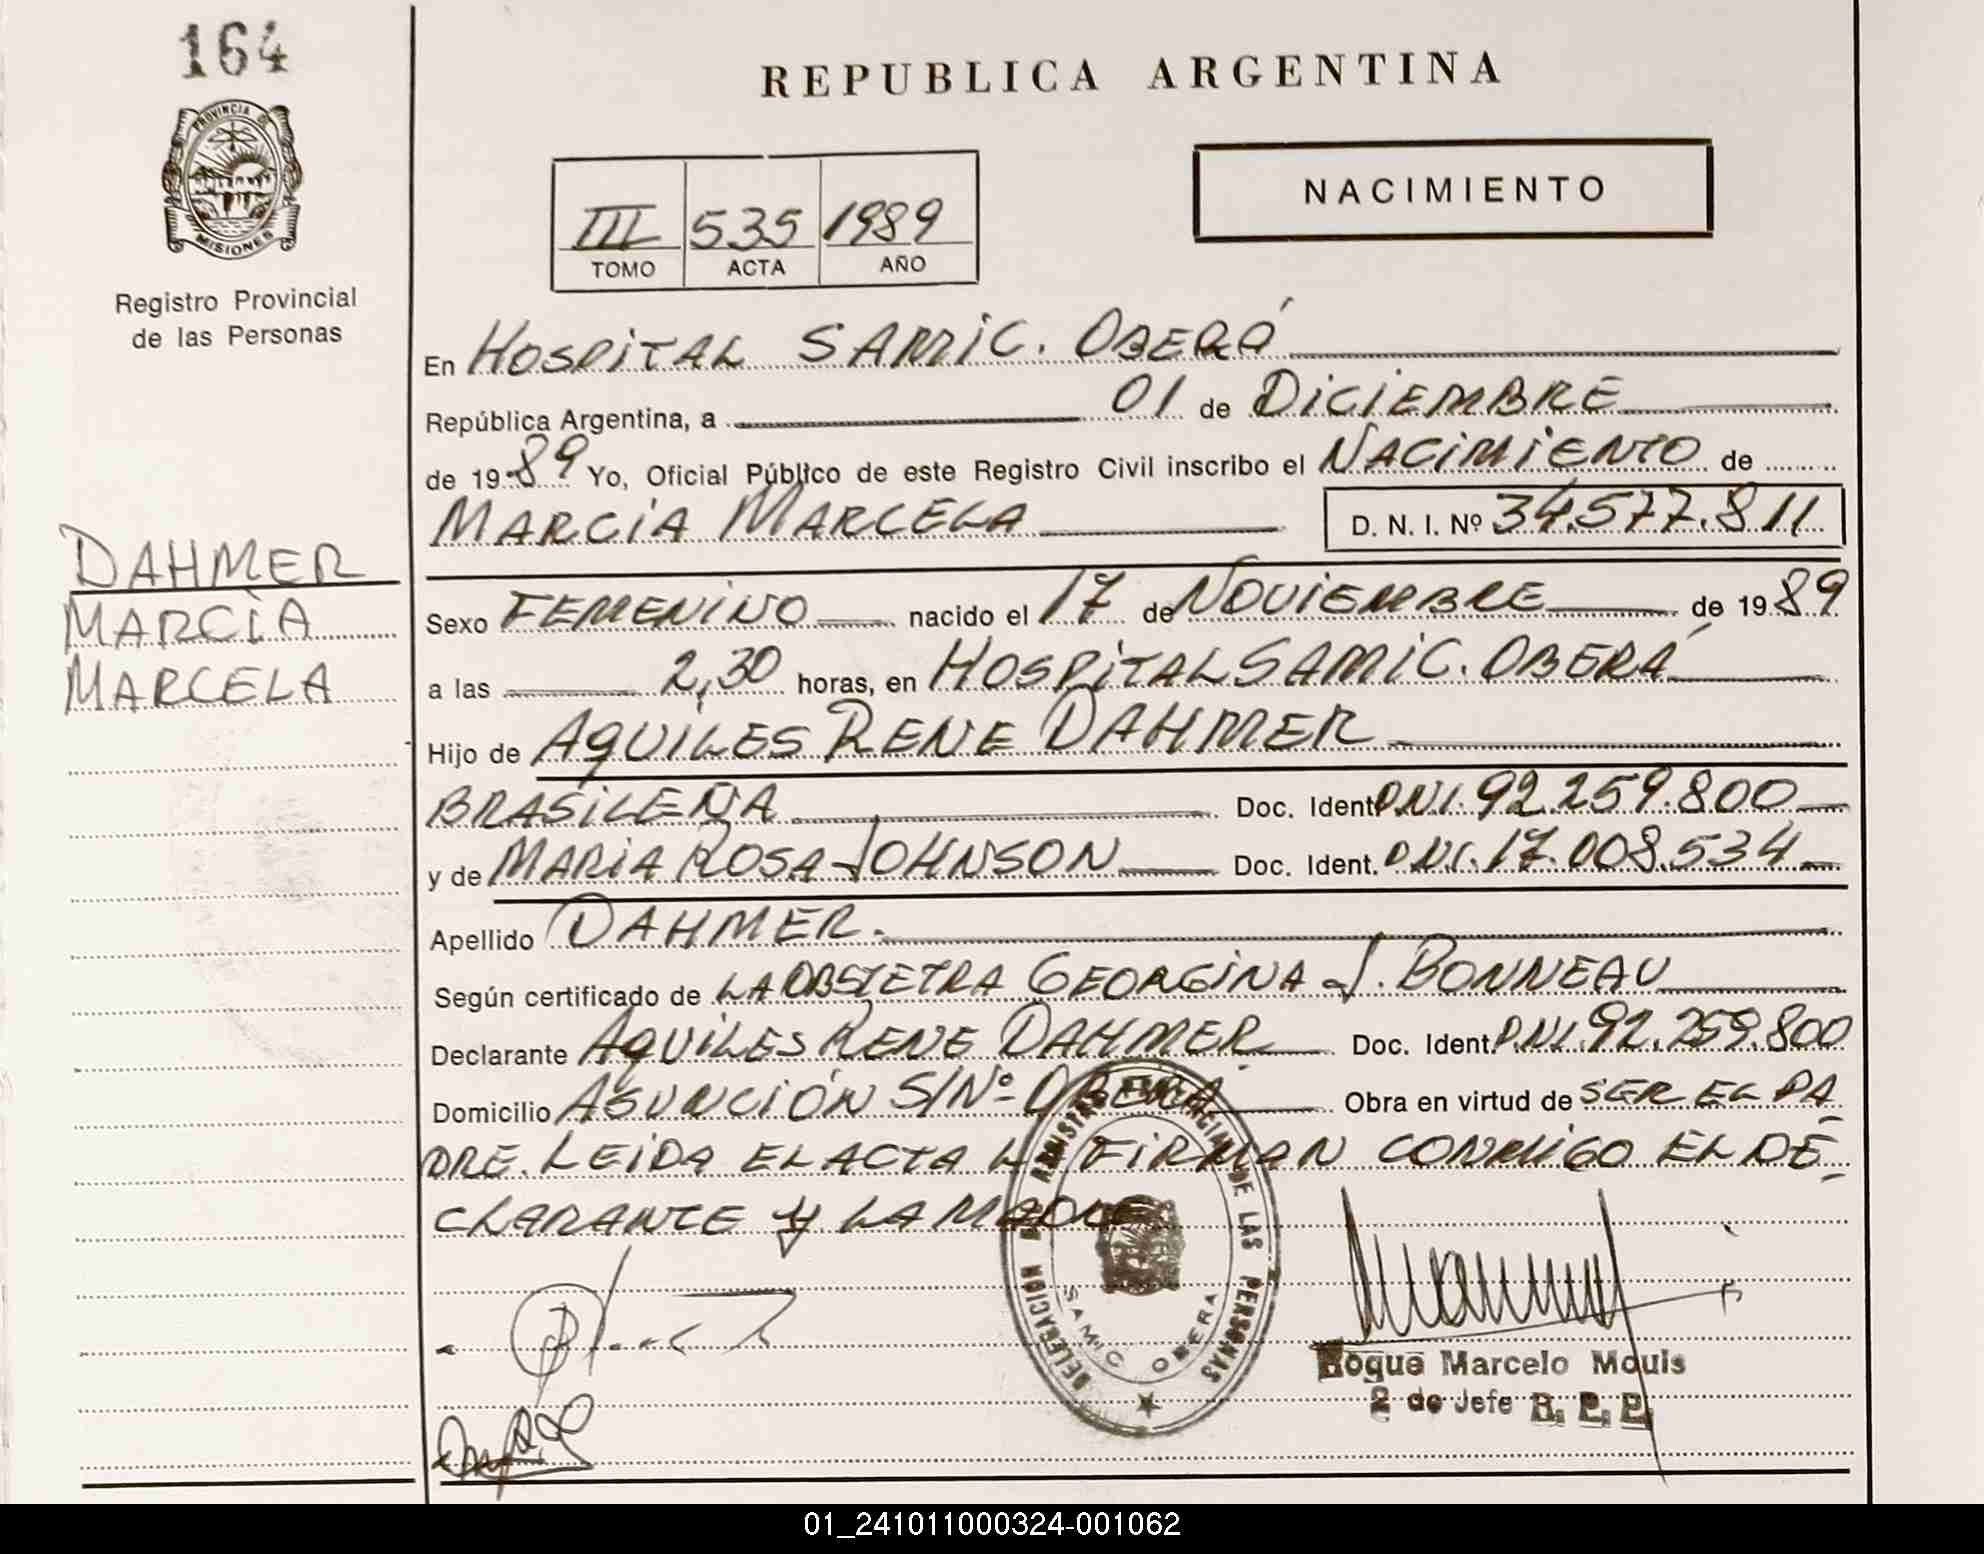 164
PROVINCIA DE
MISIONES
Registro Provincial
de las Personas
DAHMER
MARCÍA
MARCELA
REPUBLICA ARGENTINA
III 535 1989
TOMO ACTA AÑO
NACIMIENTO
En HOSPITAL SAMIC. OBERÁ
República Argentina, a 01 de DICIEMBRE
de 1989 Yo, Oficial Público de este Registro Civil inscribo el NACIMIENTO de
MARCIA MARCELA D. N. I. Nº 34.577.811
Sexo FEMENINO nacido el 17 de NOVIEMBRE de 1989
a las 2,30 horas, en HOSPITAL SAMIC. OBERÁ
Hijo de AQUILES RENE DAHMER
BRASILEÑA Doc. Ident. DNI. 92.259.800
y de MARIA ROSA JOHNSON Doc. Ident. DNI. 17.008.534
Apellido DAHMER.
Según certificado de LA OBSTETRA GEORGINA J. BONNEAU
Declarante AQUILES RENE DAHMER Doc. Ident. DNI. 92.259.800
Domicilio ASUNCIÓN S/Nº OBERÁ Obra en virtud de SER EL PA
DRE. LEIDA EL ACTA LA FIRMAN CONMIGO EL DE
CLARANTE Y LA MADRE
DELEGACION REGISTRO PROVINCIAL DE LAS PERSONAS
SAMIC OBERA
Roque Marcelo Mouis
2 de Jefe R. P. P.
01_241011000324-001062